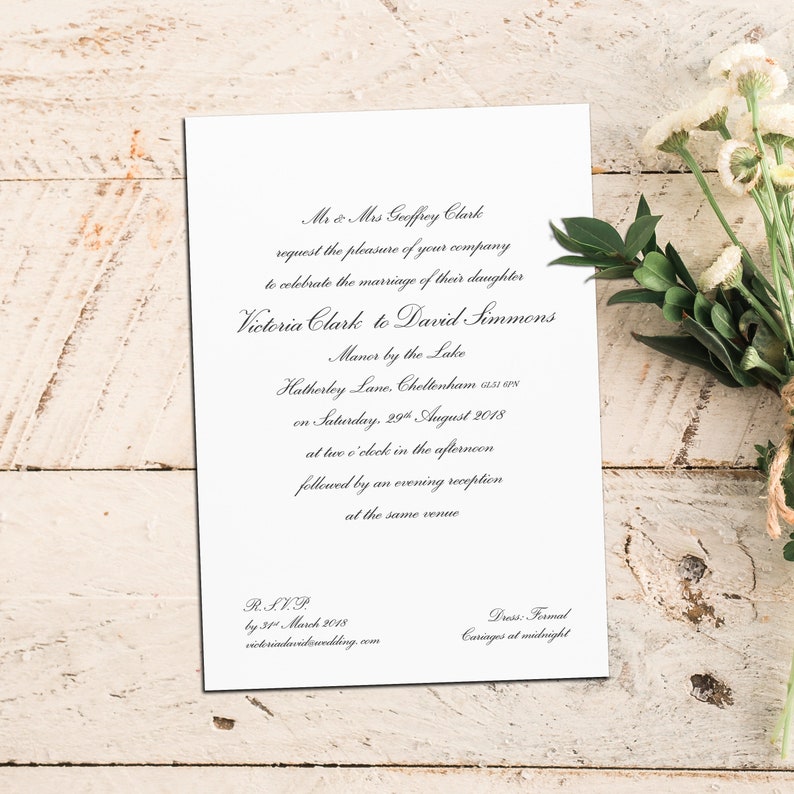 Mr & Mrs Geoffrey Clark
request the pleasure of your company
to celebrate the marriage of their daughter
Victoria Clark to David Simmons
Manor by the Lake
Hatherley Lane, Cheltenham GL51 6PN
on Saturday, 29th August 2018
at two o'clock in the afternoon
followed by an evening reception
at the same venue
R.S.V.P.
by 31st March 2018
victoriadavid@wedding.com
Dress: Formal
Cariages at midnight